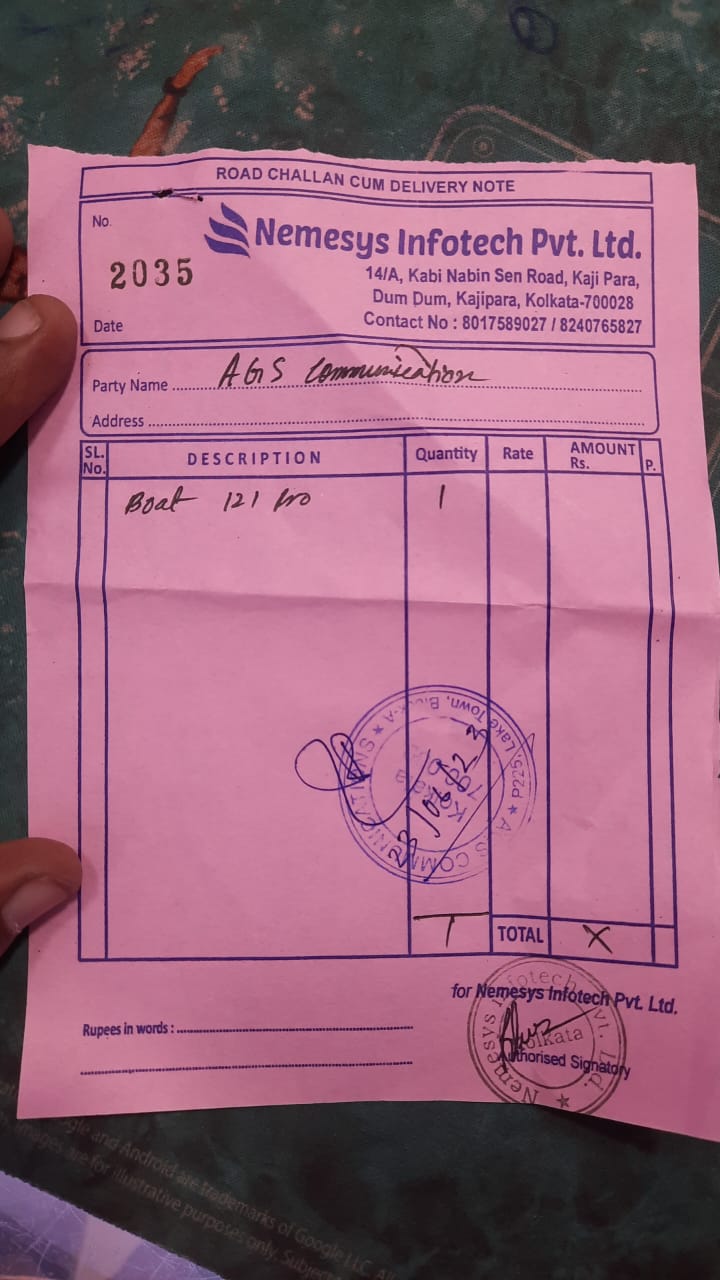 ROAD CHALLAN CUM DELIVERY NOTE
No.
2035
Nemesys Infotech Pvt. Ltd.
14/A, Kabi Nabin Sen Road, Kaji Para,
Dum Dum, Kajipara, Kolkata-700028
Date
Contact No : 8017589027 / 8240765827
Party Name AGS Communication
Address
SL. No. DESCRIPTION Quantity Rate AMOUNT Rs. P.
Boat 121 Pro 1
P225, Lake Town, Block-A
COMMUNICATIONS
1 TOTAL X
for Nemesys Infotech Pvt. Ltd.
Nemesys Infotech Pvt. Ltd.
Kolkata
Rupees in words :
Authorised Signatory
gle and Android are trademarks of Google LLC.
images are for illustrative purposes only.